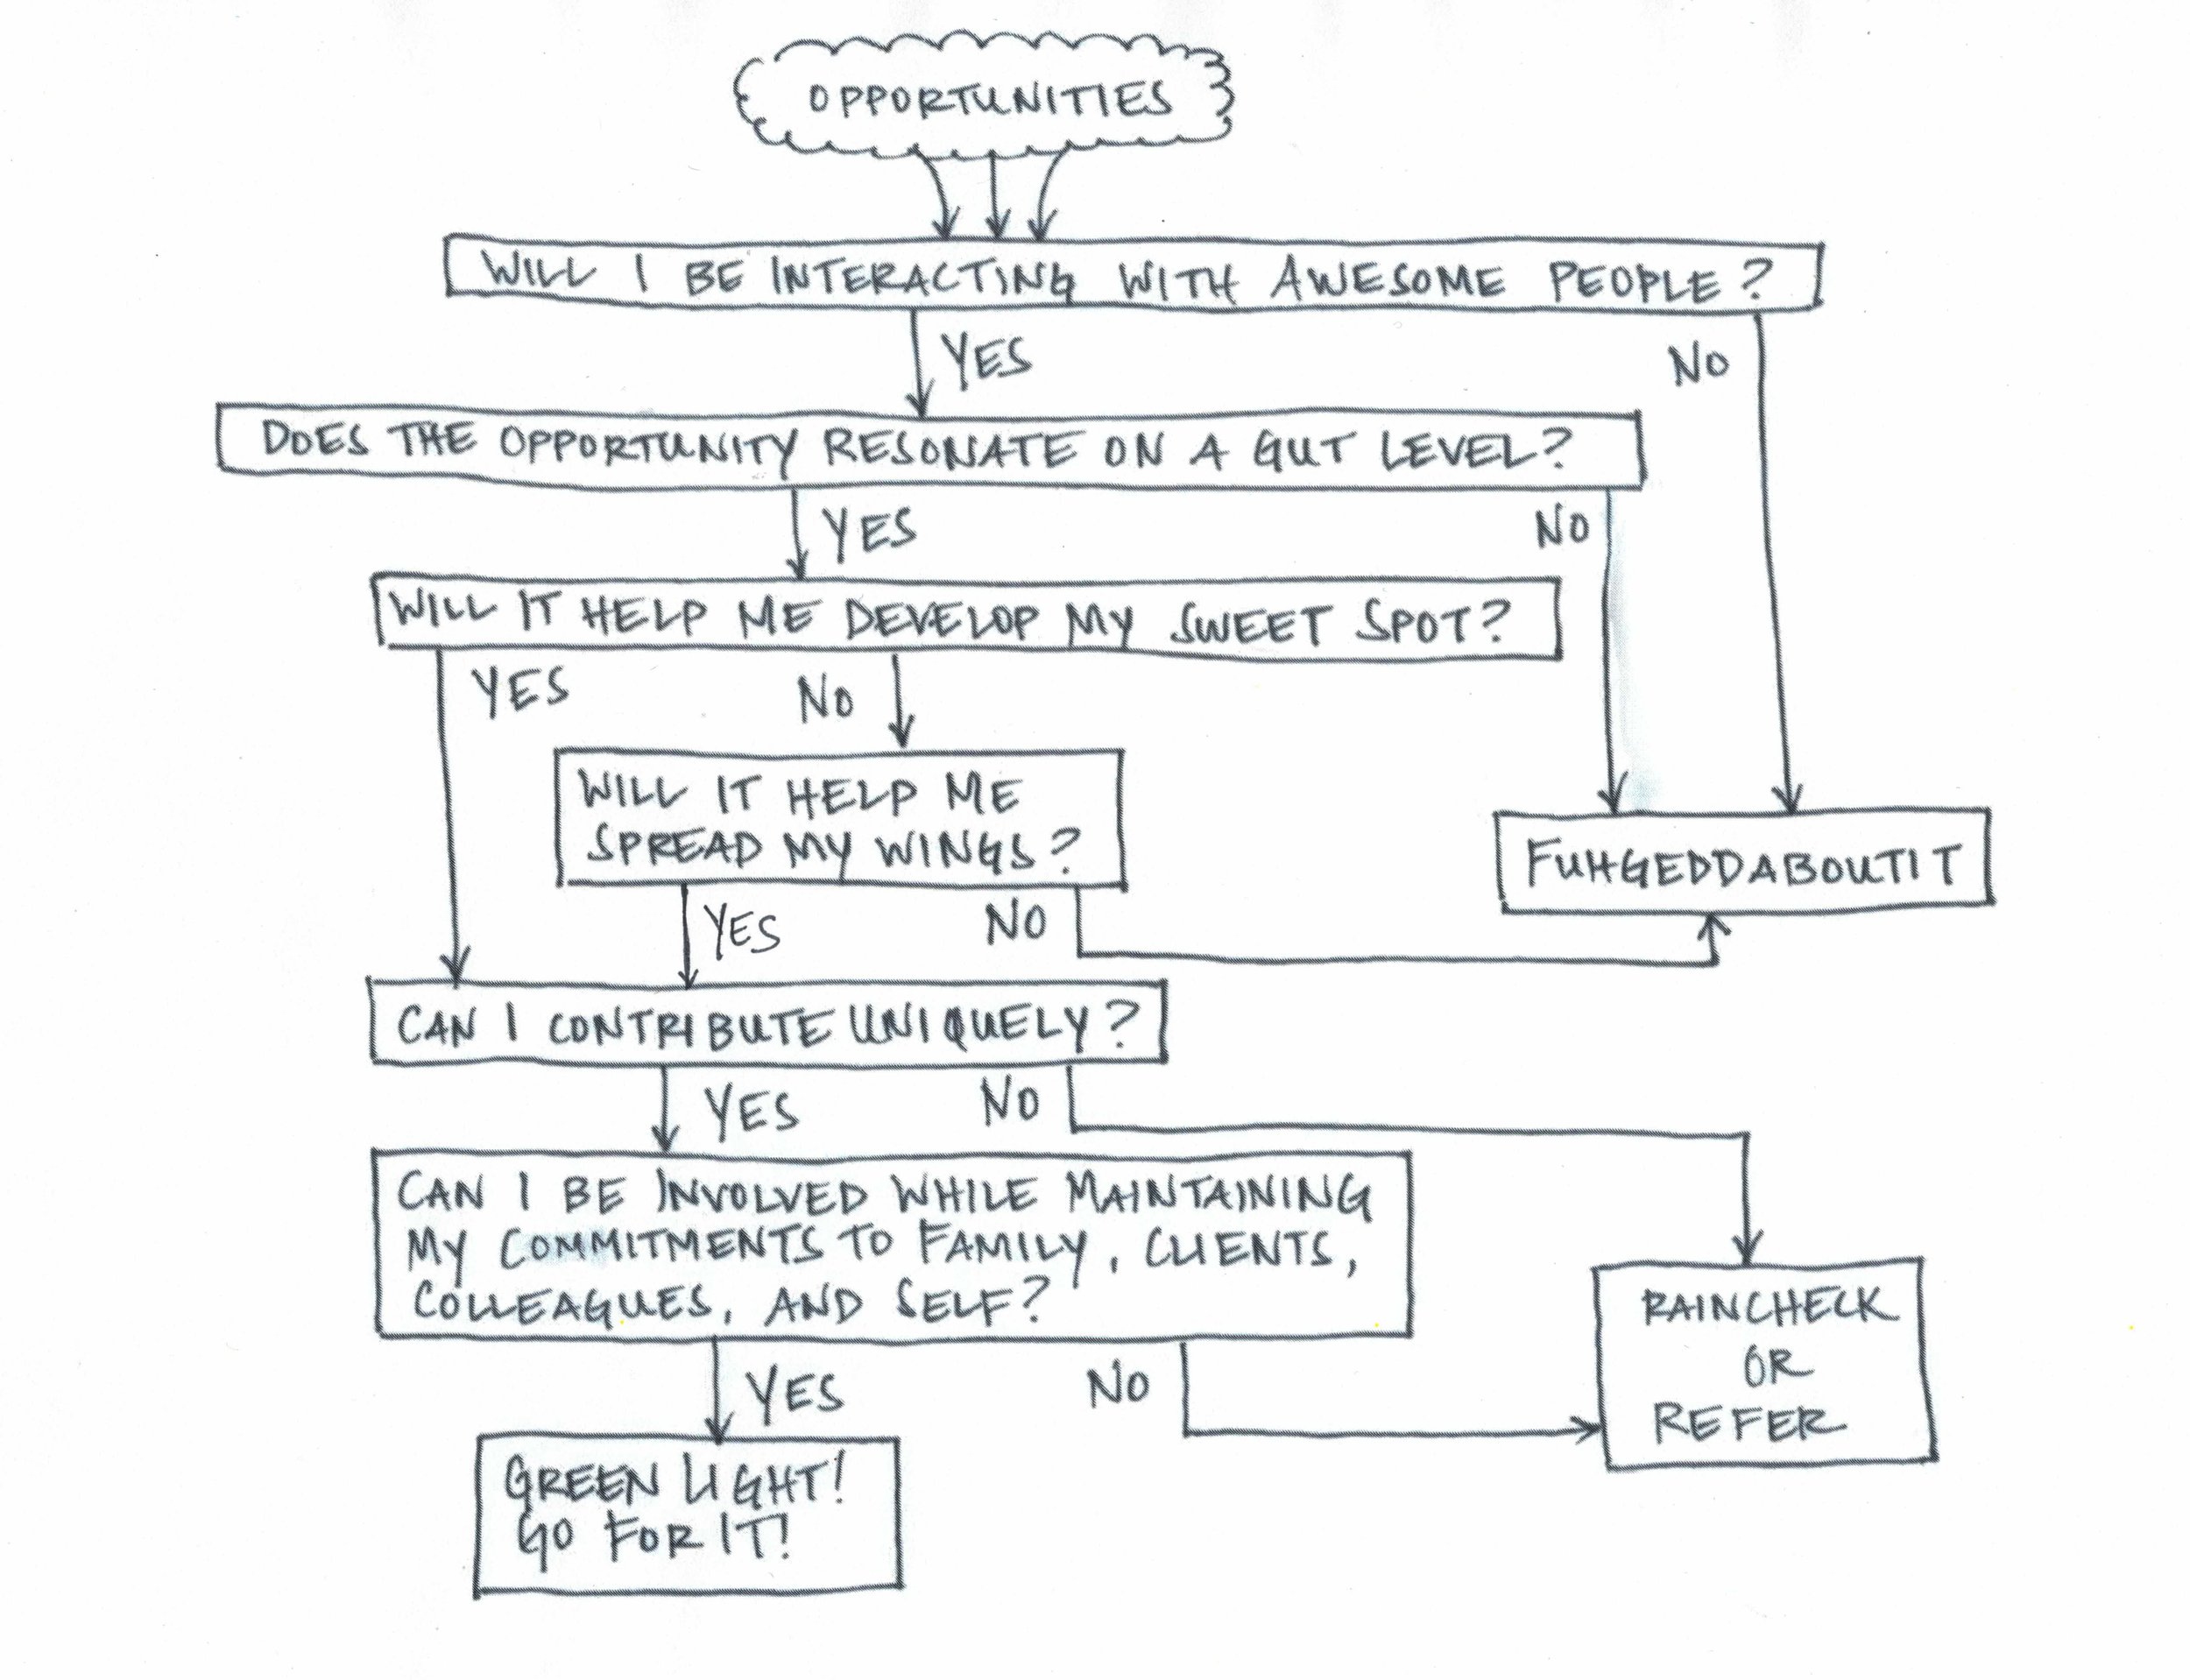 OPPORTUNITIES
WILL I BE INTERACTING WITH AWESOME PEOPLE?
YES
NO
DOES THE OPPORTUNITY RESONATE ON A GUT LEVEL?
YES
NO
WILL IT HELP ME DEVELOP MY SWEET SPOT?
YES
NO
WILL IT HELP ME
SPREAD MY WINGS?
FUHGEDDABOUTIT
YES
NO
CAN I CONTRIBUTE UNIQUELY?
YES
NO
CAN I BE INVOLVED WHILE MAINTAINING
MY COMMITMENTS TO FAMILY, CLIENTS,
COLLEAGUES, AND SELF?
RAINCHECK
OR
REFER
YES
NO
GREEN LIGHT!
GO FOR IT!